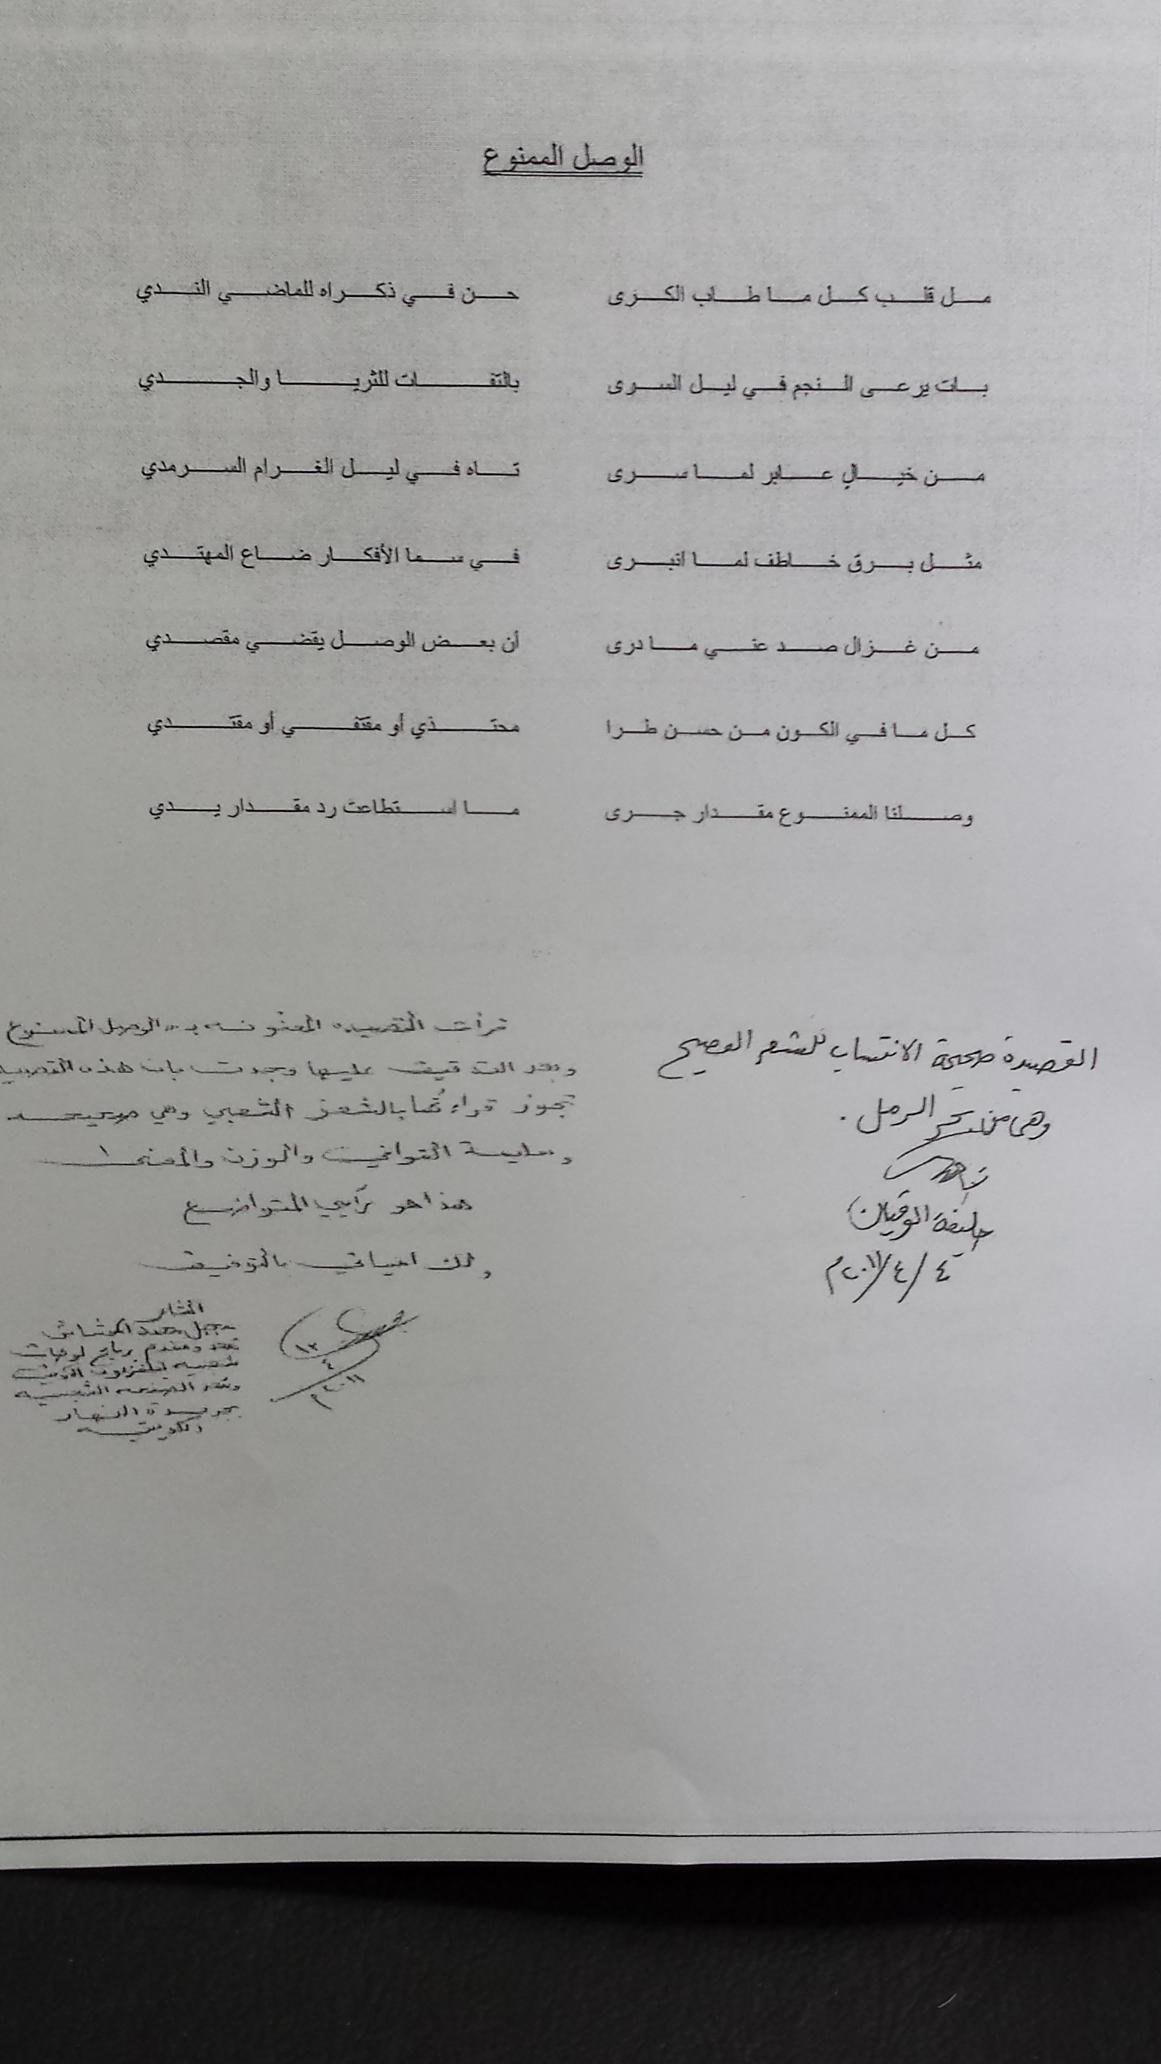 الوصل الممنوع
مل قلب كل ما طاب الكرى حن في ذكراه للماضي الندي
بات يرعى النجم في ليل السرى بالتفات للثريا والجدي
من خيالٍ عابر لما سرى تاه في ليل الغرام السرمدي
مثل برق خاطف لما انبرى في سما الأفكار ضاع المهتدي
من غزال صد عني ما درى أن بعض الوصل يقضي مقصدي
كل ما في الكون من حسن طرا محتذي أو مقتفي أو مقتدي
وصلنا الممنوع مقدار جرى ما استطاعت رد مقدار يدي
القصيدة صحيحة الانتساب للشعر الفصيح
وهي من بحر الرمل.
خليفة الوقيان
٤/٤/٢٠١١م
قرأت القصيدة المعنونه بـ "الوصل الممنوع
وبعد التدقيق عليها وجدت بان هذه القصيده
تجوز قراءتُها بالشعر الشعبي وهي صحيحه
وسليمة القوافي والوزن والمعنى
هذا هو رأيي المتواضع
ولك امنياتي بالتوفيق
الشاعر
معد ومقدم برنامج
شعبيه بتلفزيون الكويت
ومعد الصفحه الشعبيه
بجريدة النهار
الكويتيه
١٣
٤
٢٠١١م